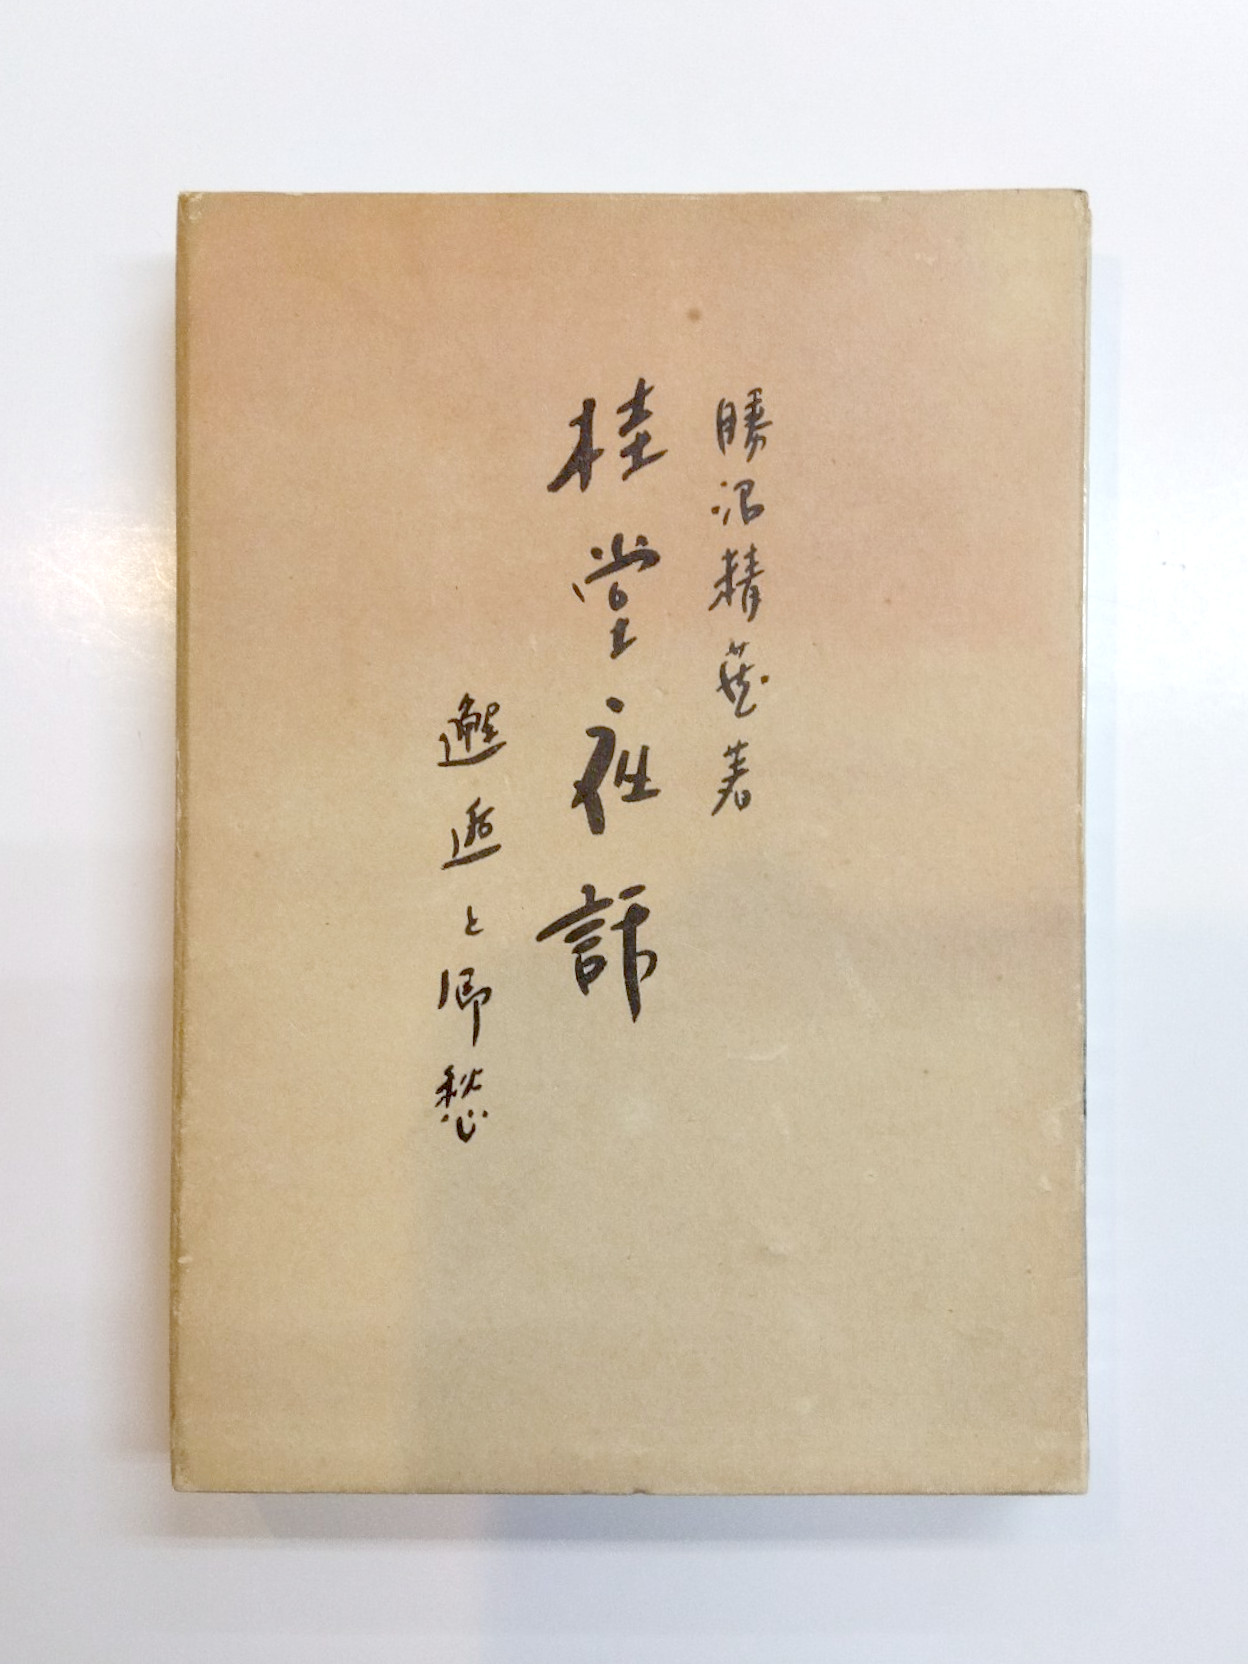 勝沼精蔵著
桂堂夜話
邂逅と郷愁